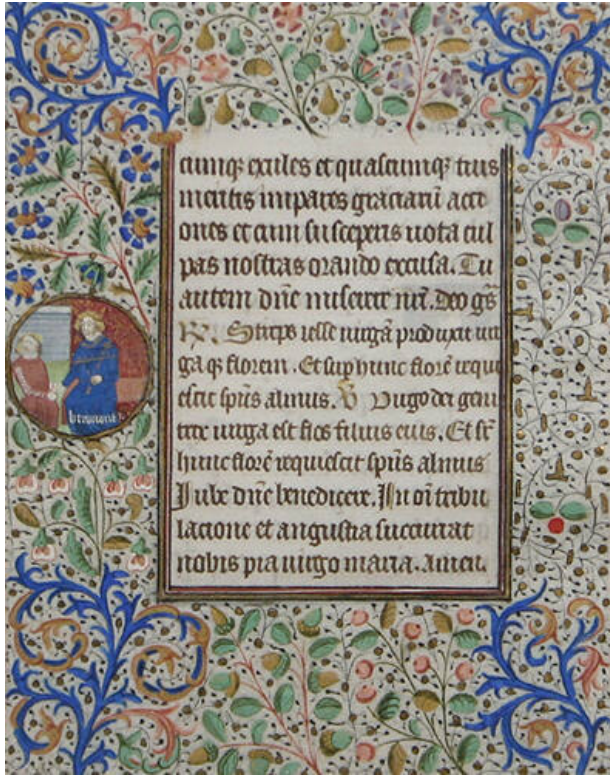 cumq; exiles et quascumq; tuis
meritis impares graciarū acti
ones et cum susceperis uota cul
pas nostras orando excusa. Tu
autem dn̄e miserere nr̄i. Deo gr̄s
R̷. Stirps iesse uirgā produxit uir
ga q; florem. Et sup hunc florē requi
escit spūs almus. V̷ Virgo dei geni
trix uirga est flos filius eius. Et sr̄
hunc florē requiescit spūs almus
Jube dn̄e benedicere. In oī tribu
lacione et angustia succurrat
nobis pia uirgo maria. Amen.